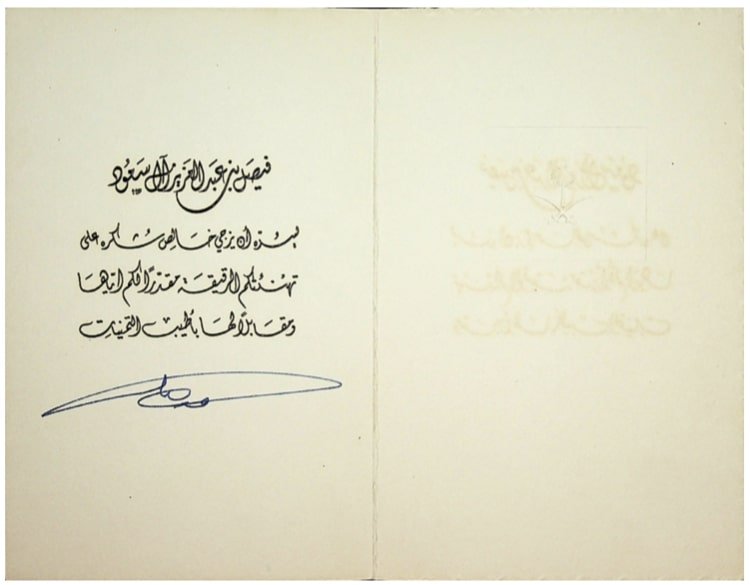 فيصل بن عبد العزيز آل سعود
يسرّه أن يزجي خالص شكره على
تهنئتكم الرقيقة مقدّرًا لكم إياها
ومقابلًا لها بأطيب التمنيات